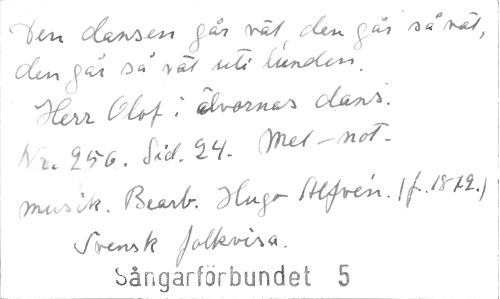 Den dansen går väl, den går så väl,
den går så väl uti lunden.
Herr Olof i älvornas dans.
Nr. 256. Sid. 24. Mel-not-
musik. Bearb. Hugo Alfvén. (f. 1872.)
Svensk folkvisa.
Sångarförbundet 5